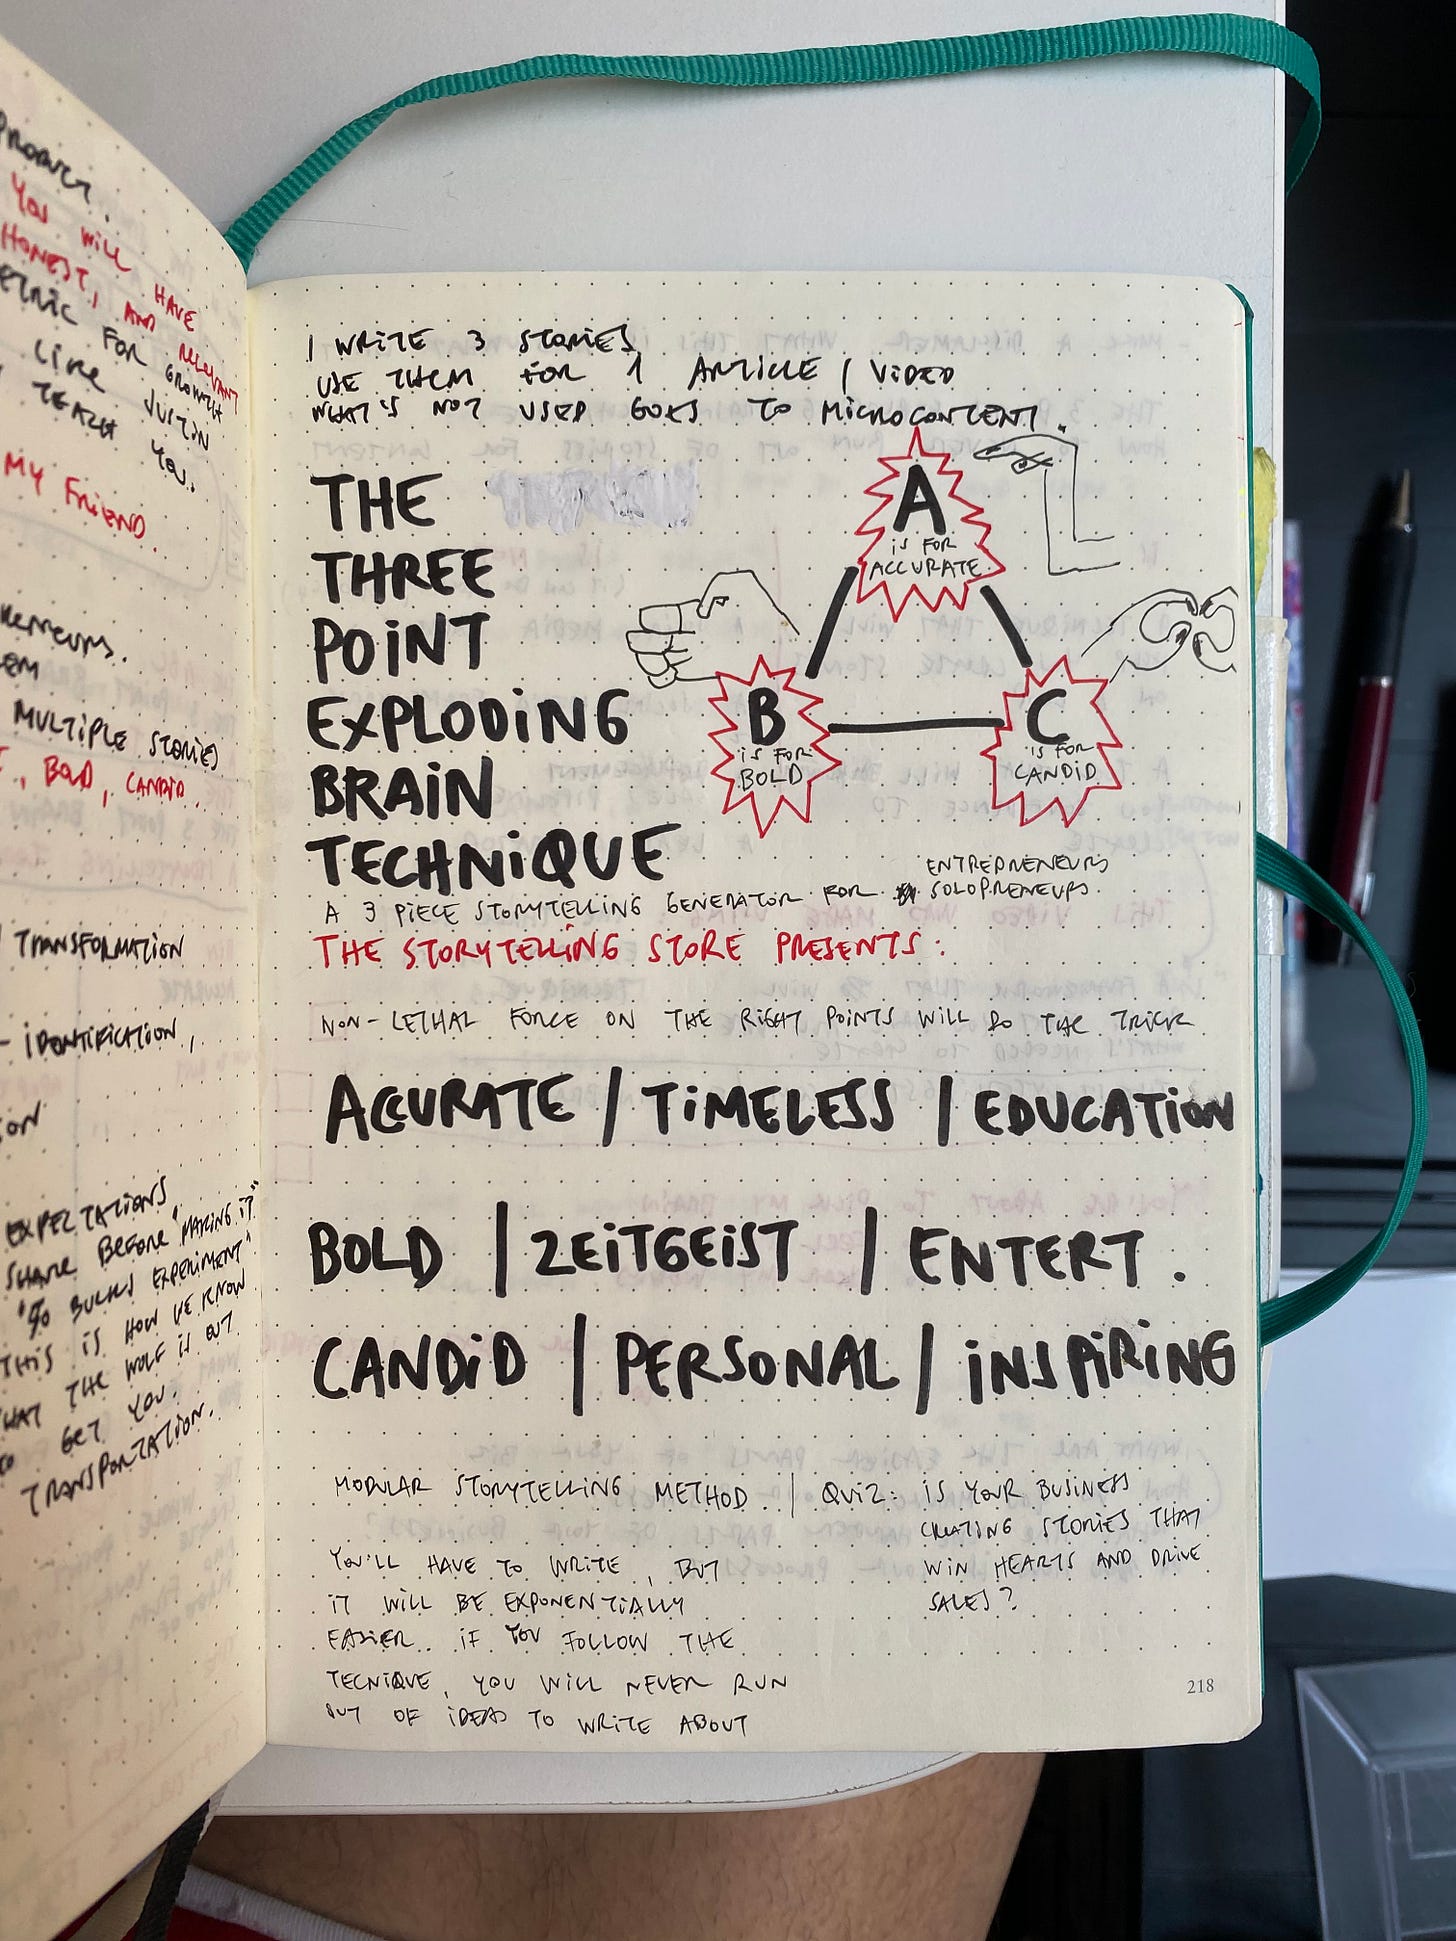 PRODUCT.
YOU WILL HAVE
HONEST, AND RELEVANT
METRIC FOR GROWTH
LIKE JUSTIN
TEACH YOU.
MY FRIEND.
MULTIPLE STORIES
, BOLD, CANDID.
TRANSFORMATION
- IDENTIFICATION,
EXPECTATIONS
SHARE BEFORE "MAKING IT"
BUCKS EXPERIMENT"
THIS IS HOW WE KNOW
THAT THE WOLF IS OUT
TO GET YOU.
TRANSPORTATION.
I WRITE 3 STORIES
USE THEM FOR 1 ARTICLE / VIDEO
WHAT'S NOT USED GOES TO MICROCONTENT.
THE
THREE
POINT
EXPLODING
BRAIN
TECHNIQUE
A
IS FOR
ACCURATE
B
IS FOR
BOLD
C
IS FOR
CANDID
A 3 PIECE STORYTELLING GENERATOR FOR ENTREPRENEURS
SOLOPRENEURS.
THE STORYTELLING STORE PRESENTS:
NON-LETHAL FORCE ON THE RIGHT POINTS WILL DO THE TRICK
ACCURATE / TIMELESS / EDUCATION
BOLD | ZEITGEIST | ENTERT.
CANDID | PERSONAL / INSPIRING
MODULAR STORYTELLING METHOD. | QUIZ: IS YOUR BUSINESS
CREATING STORIES THAT
WIN HEARTS AND DRIVE
SALES?
YOU'LL HAVE TO WRITE, BUT
IT WILL BE EXPONENTIALLY
EASIER. IF YOU FOLLOW THE
TECNIQUE, YOU WILL NEVER RUN
OUT OF IDEAS TO WRITE ABOUT
218